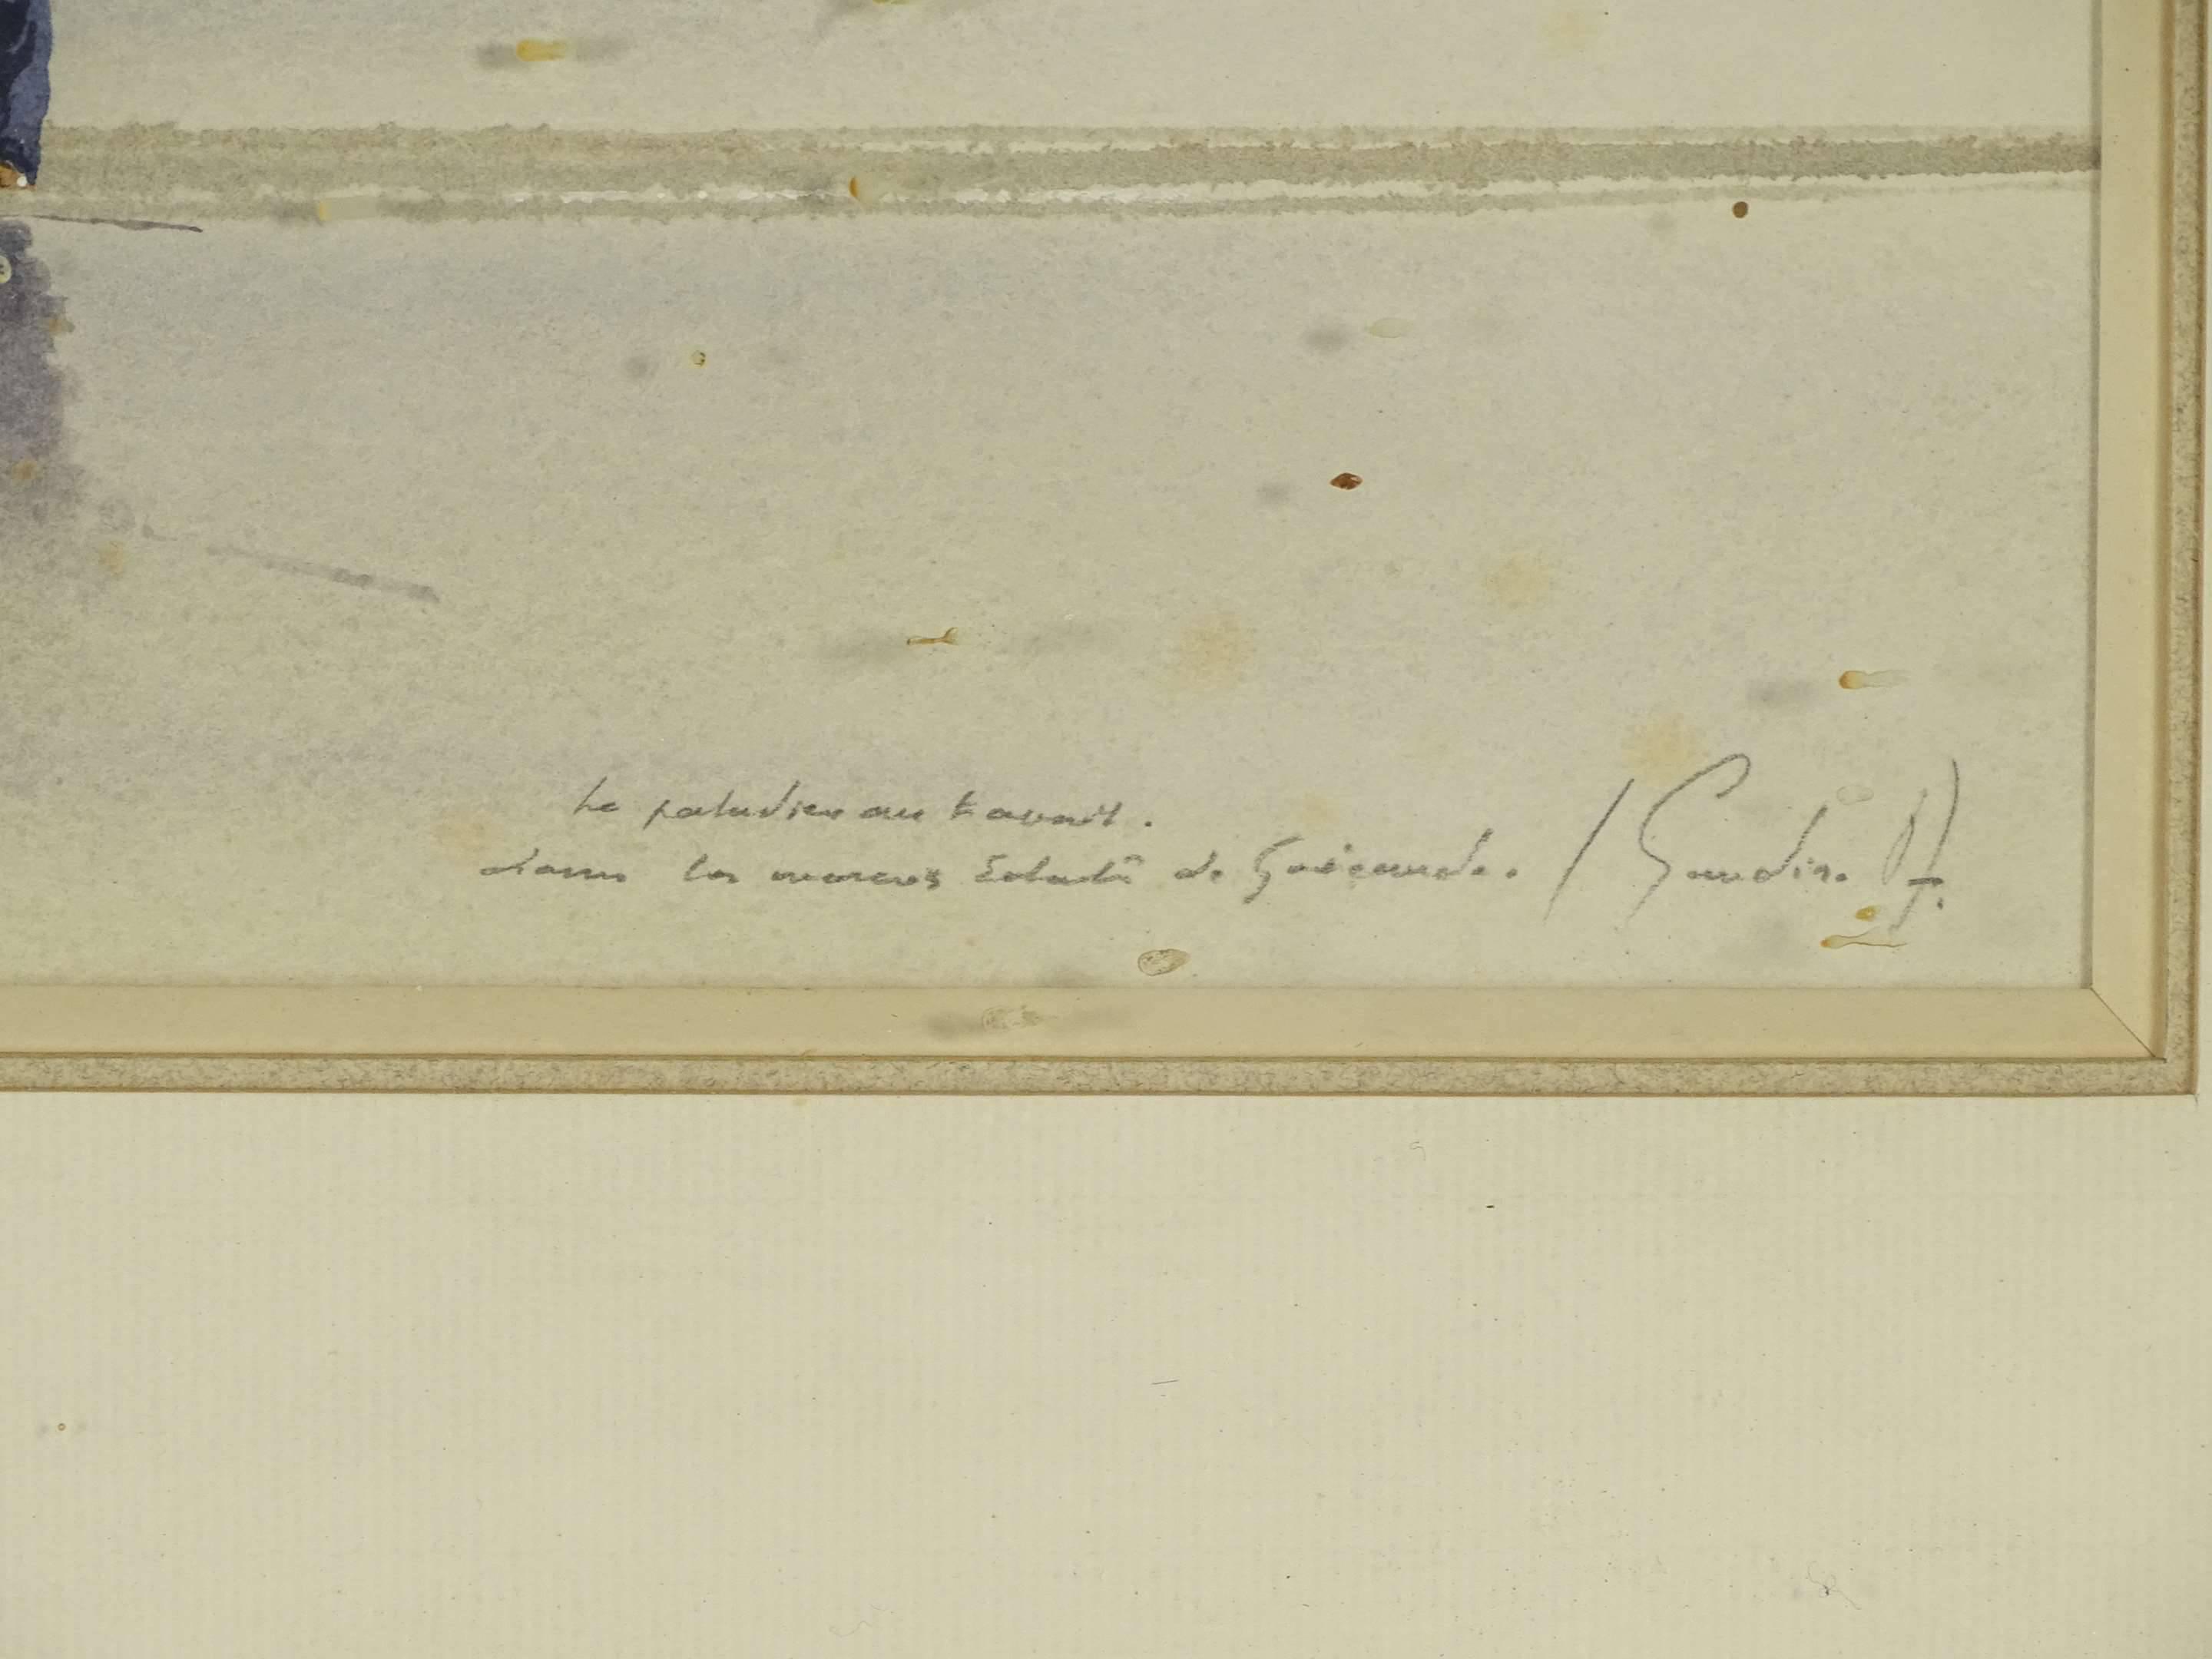 Le paludier au travail.
dans les marais salants de Guérande. / Gaudin.